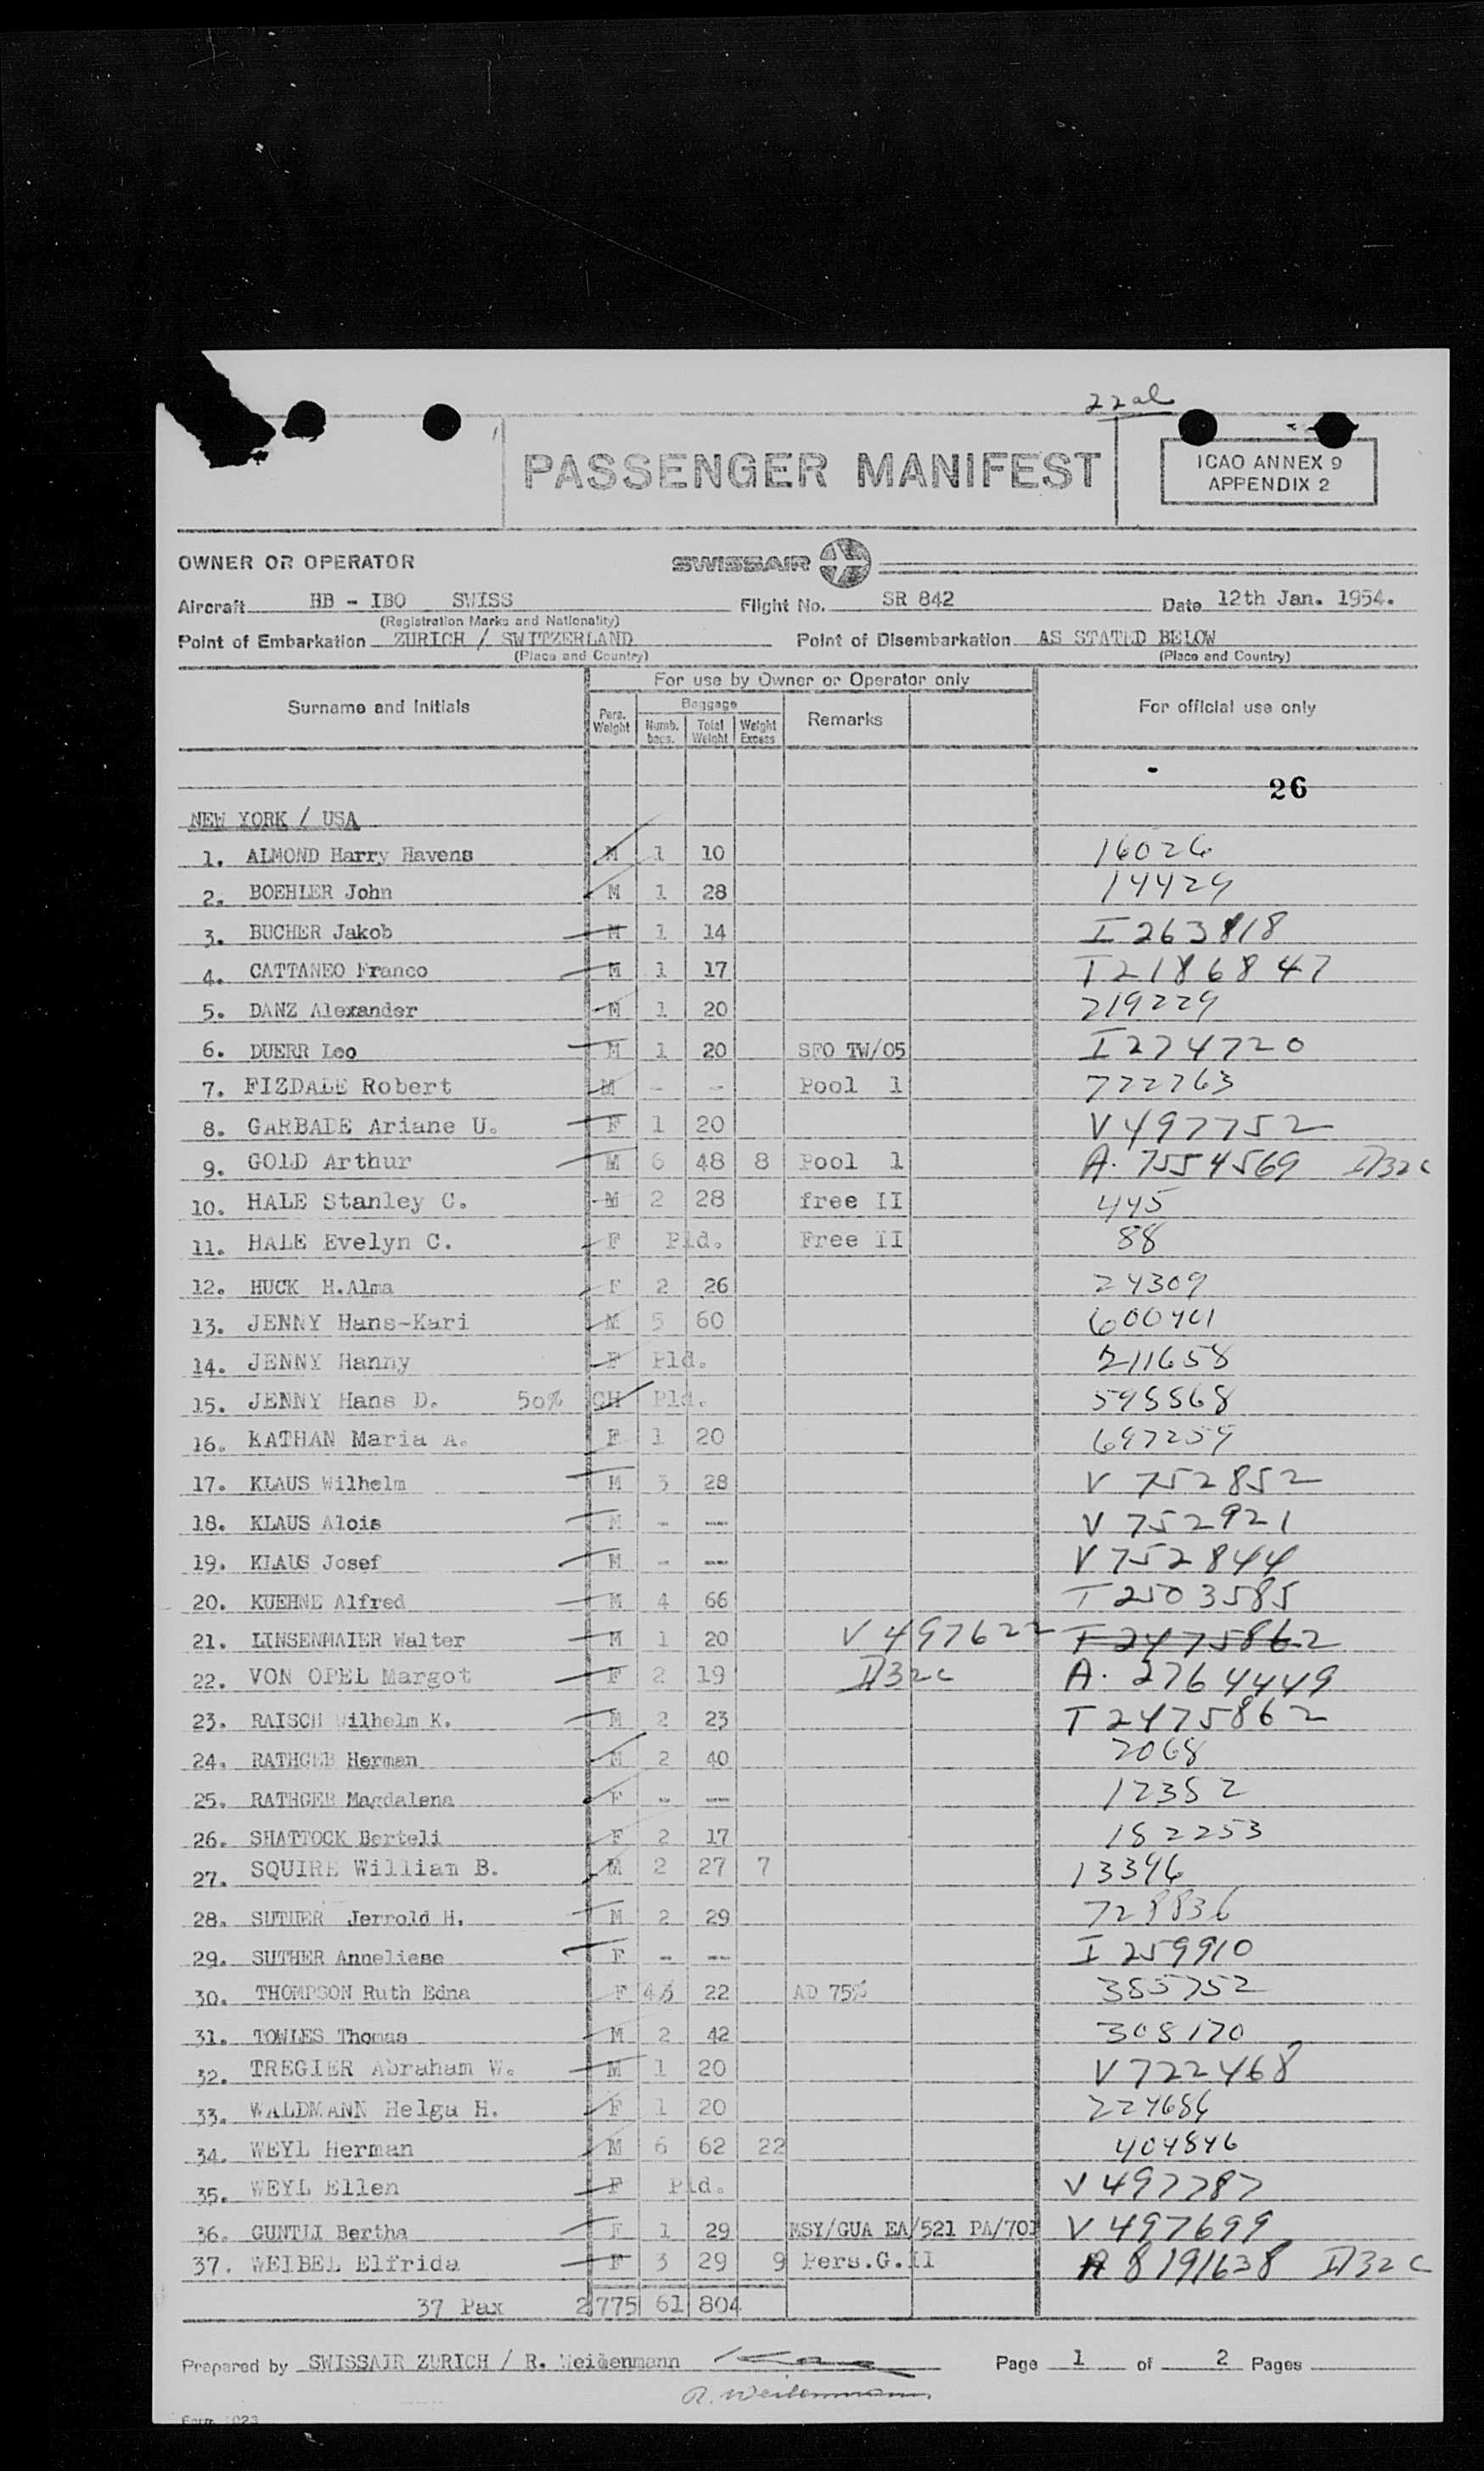 22al
PASSENGER MANIFEST
ICAO ANNEX 9
APPENDIX 2
OWNER OR OPERATOR SWISSAIR
Aircraft HB - IBO SWISS Flight No. SR 842 Date 12th Jan. 1954.
(Registration Marks and Nationality)
Point of Embarkation ZURICH / SWITZERLAND Point of Disembarkation AS STATED BELOW
(Place and Country) (Place and Country)
For use by Owner or Operator only
Surname and Initials Pers. Weight Baggage Numb. bags. Total Weight Weight Excess Remarks For official use only
26
NEW YORK / USA
1. ALMOND Harry Havens M 1 10 16026
2. BOEHLER John M 1 28 14429
3. BUCHER Jakob M 1 14 I 263818
4. CATTANEO Franco M 1 17 T 2186847
5. DANZ Alexander M 1 20 219229
6. DUERR Leo M 1 20 SFO TW/05 I 274720
7. FIZDALE Robert M - - Pool 1 722763
8. GARBADE Ariane U. F 1 20 V 497752
9. GOLD Arthur M 6 48 8 Pool 1 A. 7554569 D/32c
10. HALE Stanley C. M 2 28 free II 445
11. HALE Evelyn C. F Pld. Free II 88
12. HUCK H.Alma F 2 26 24309
13. JENNY Hans-Kari M 5 60 600401
14. JENNY Hanny F Pld. 211658
15. JENNY Hans D. 50% CH Pld. 598868
16. KATHAN Maria A. F 1 20 697259
17. KLAUS Wilhelm M 3 28 V 752852
18. KLAUS Alois M - -- V 752921
19. KLAUS Josef M - -- V 752844
20. KUEHNE Alfred M 4 66 T 2503585
21. LINSENMAIER Walter M 1 20 V 497622 T 2475862
22. VON OPEL Margot F 2 19 D/32c A. 2764449
23. RAISCH Wilhelm K. M 2 23 T 2475862
24. RATHGEB Herman M 2 40 2068
25. RATHGEB Magdalena F - -- 12352
26. SHATTOCK Berteli F 2 17 182253
27. SQUIRE William B. M 2 27 7 13396
28. SUTHER Jerrold H. M 2 29 728836
29. SUTHER Anneliese F - -- I 259910
30. THOMPSON Ruth Edna F 22 AD 75% 385752
31. TOWLES Thomas M 2 42 308170
32. TREGIER Abraham W. M 1 20 V 722468
33. WALDMANN Helga H. F 1 20 224686
34. WEYL Herman M 6 62 22 404846
35. WEYL Ellen F Pld. V 497787
36. GUNTLI Bertha F 1 29 MSY/GUA EA/521 PA/701 V 497699
37. WEIBEL Elfrida F 3 29 9 Pers.G.II A 8191638 D/32c
37 Pax 2775 61 804
Prepared by SWISSAIR ZURICH / R. Weidenmann Page 1 of 2 Pages
R. Weidenmann
Form 1023